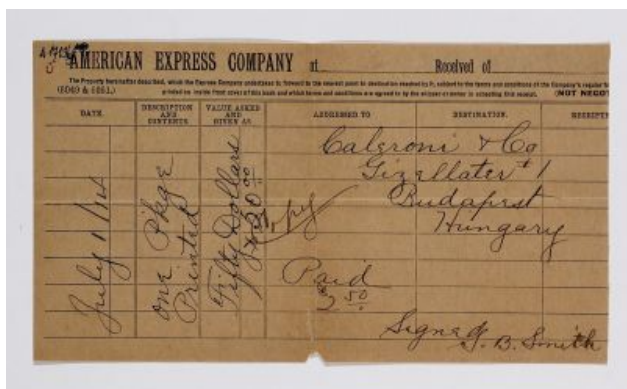 AMERICAN EXPRESS COMPANY at Received of
The Property hereinafter described, which the Express Company undertakes to forward to the nearest point to destination reached by it, subject to the terms and conditions of the Company's regular
printed on inside front cover of this book and which terms and conditions are agreed to by the shipper or owner in accepting this receipt. (NOT NEGO
(5049 & 5051.)
DATE. DESCRIPTION AND CONTENTS. VALUE ASKED AND GIVEN AS. ADDRESSED TO DESTINATION. RECEIPT
July 1/14
One Pkge
Printed
Fifty Dollars
$50.00
Calgroni & Co
Gizellater # 1
Budapest
Hungary
Paid
2 50
Signed
B. Smith